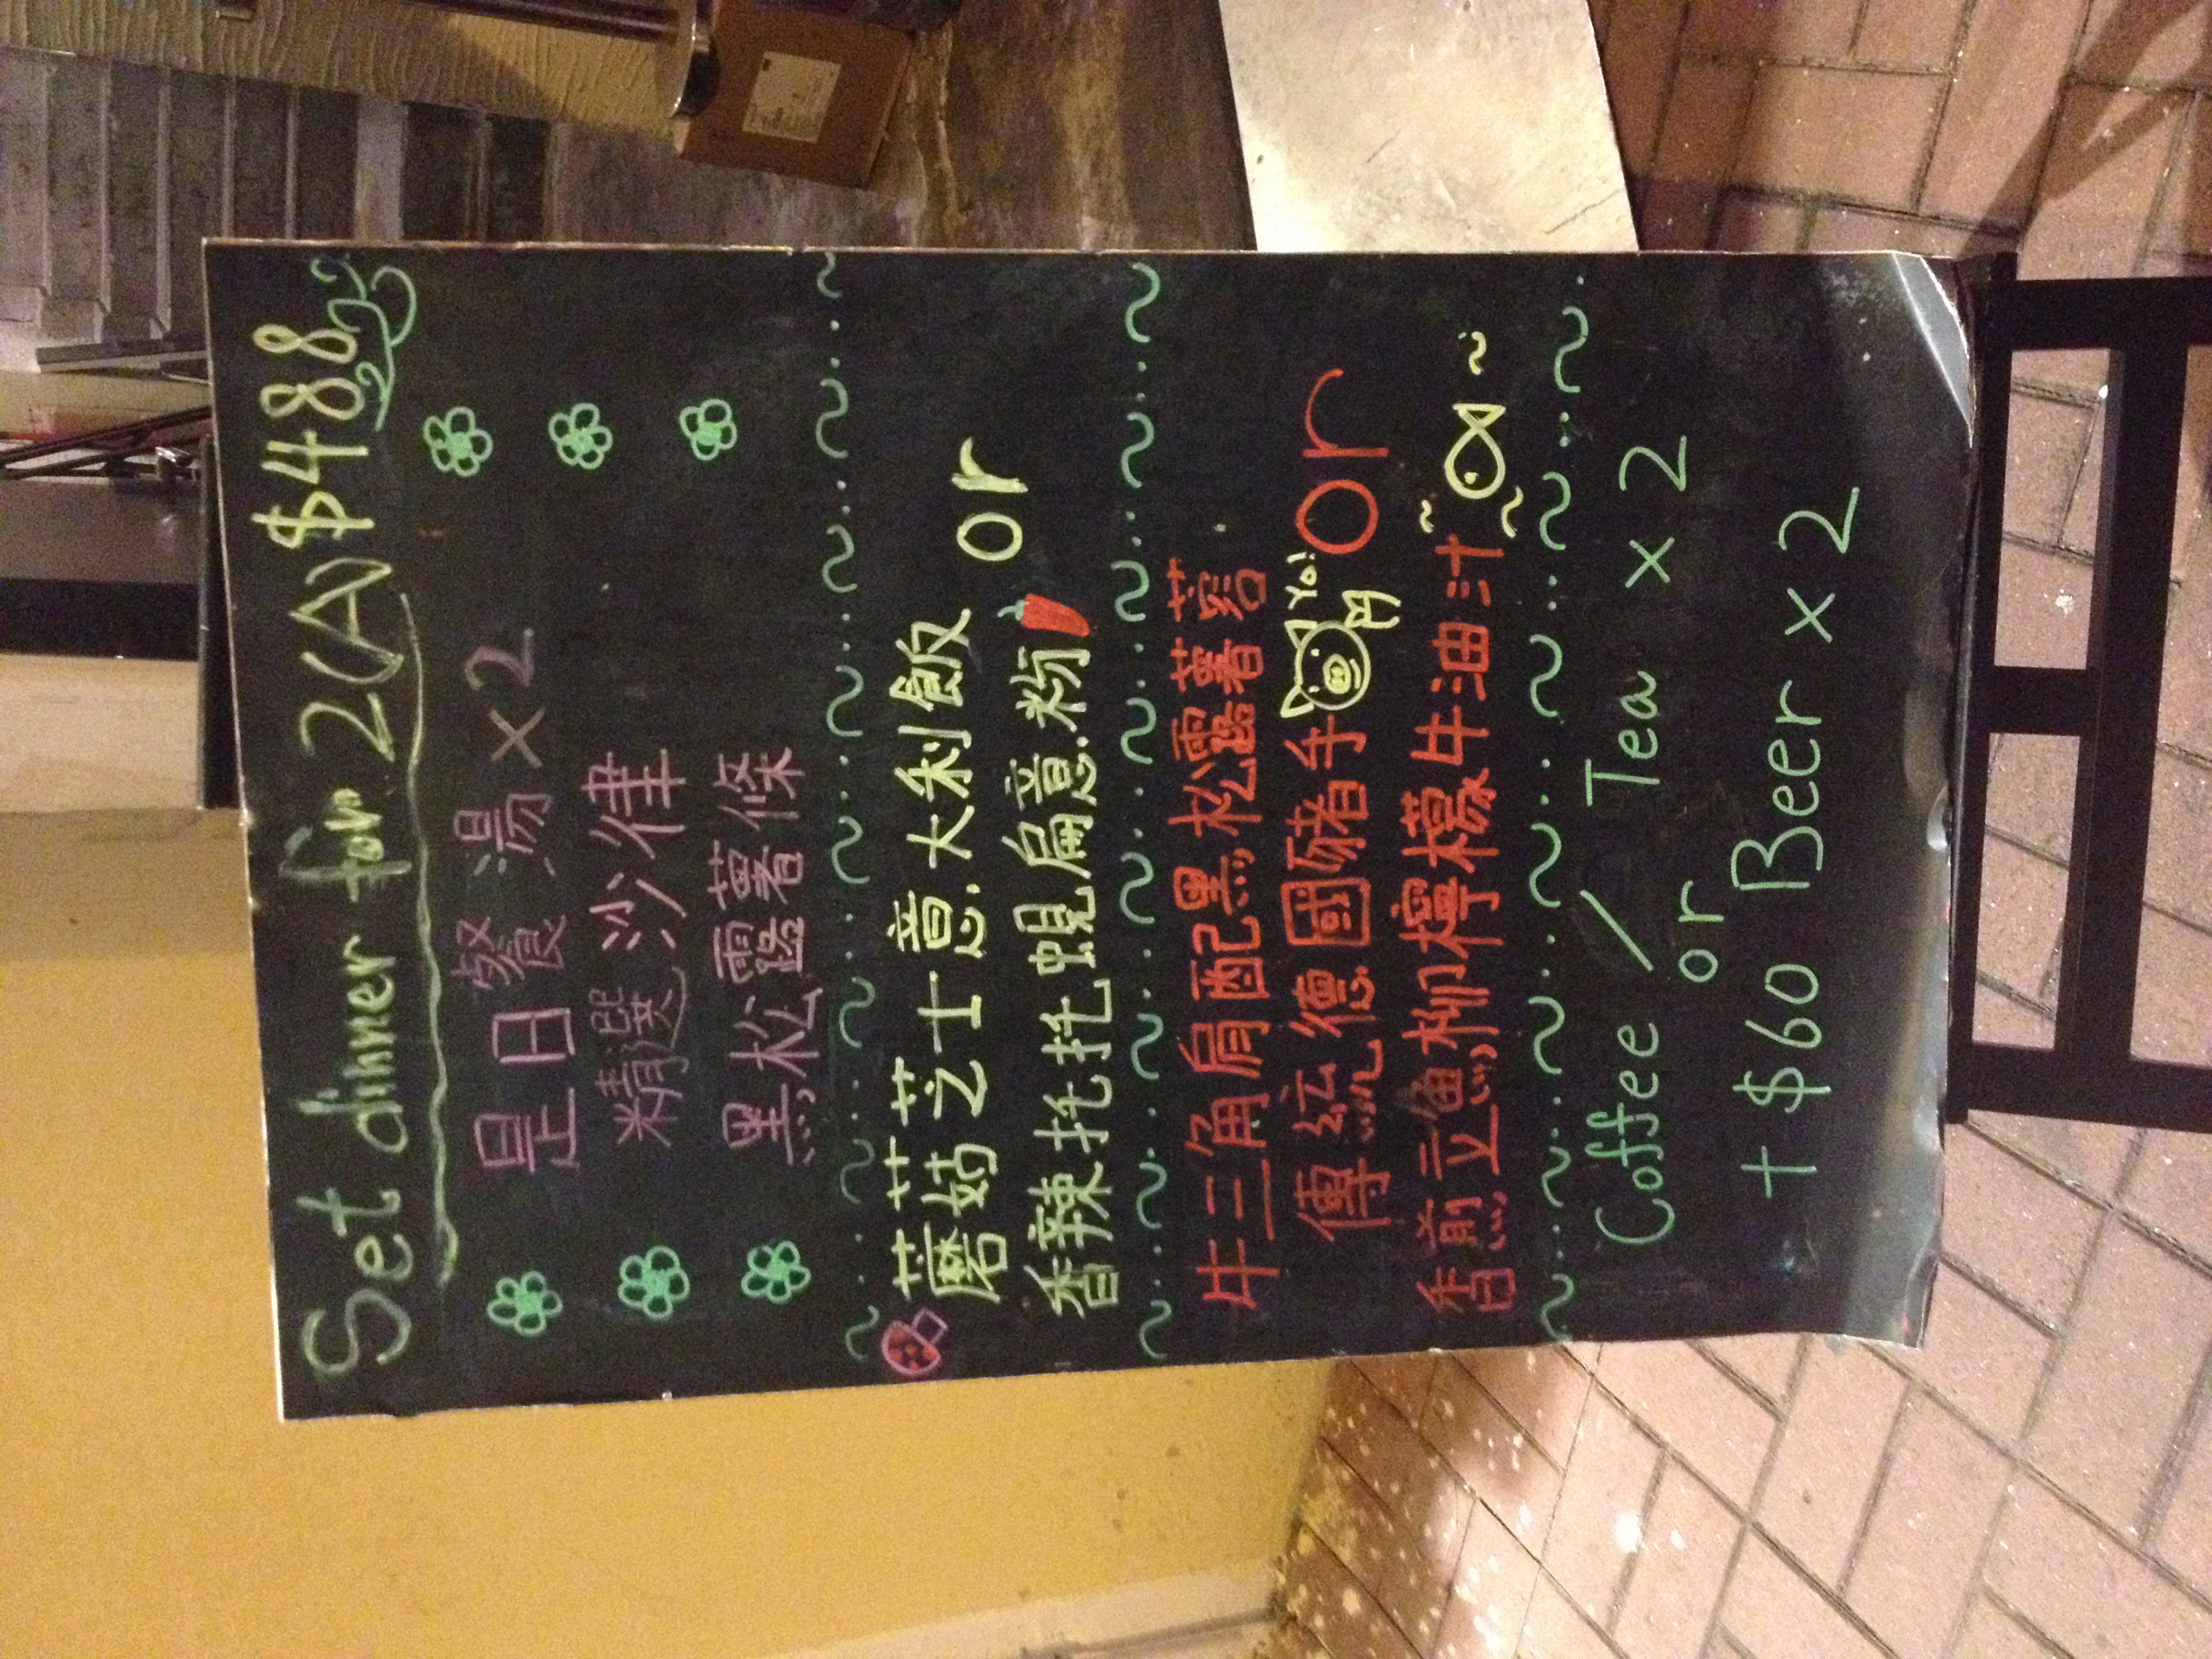 Set dinner for 2(A) $488
是日餐湯 x2
精選沙律
黑松露薯條
蘑菇芝士意大利飯 or
香辣扥扥蜆扁意粉
牛三角肩配黑松露薯蓉
傳統德國豬手 Yo! or
香煎立魚柳檸檬牛油汁
Coffee / Tea x 2
or
+ $60 Beer x 2